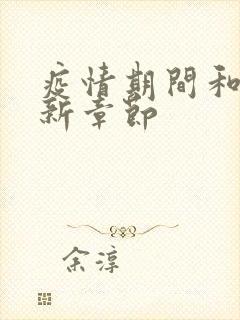 疫情期間和
新章節
余淳